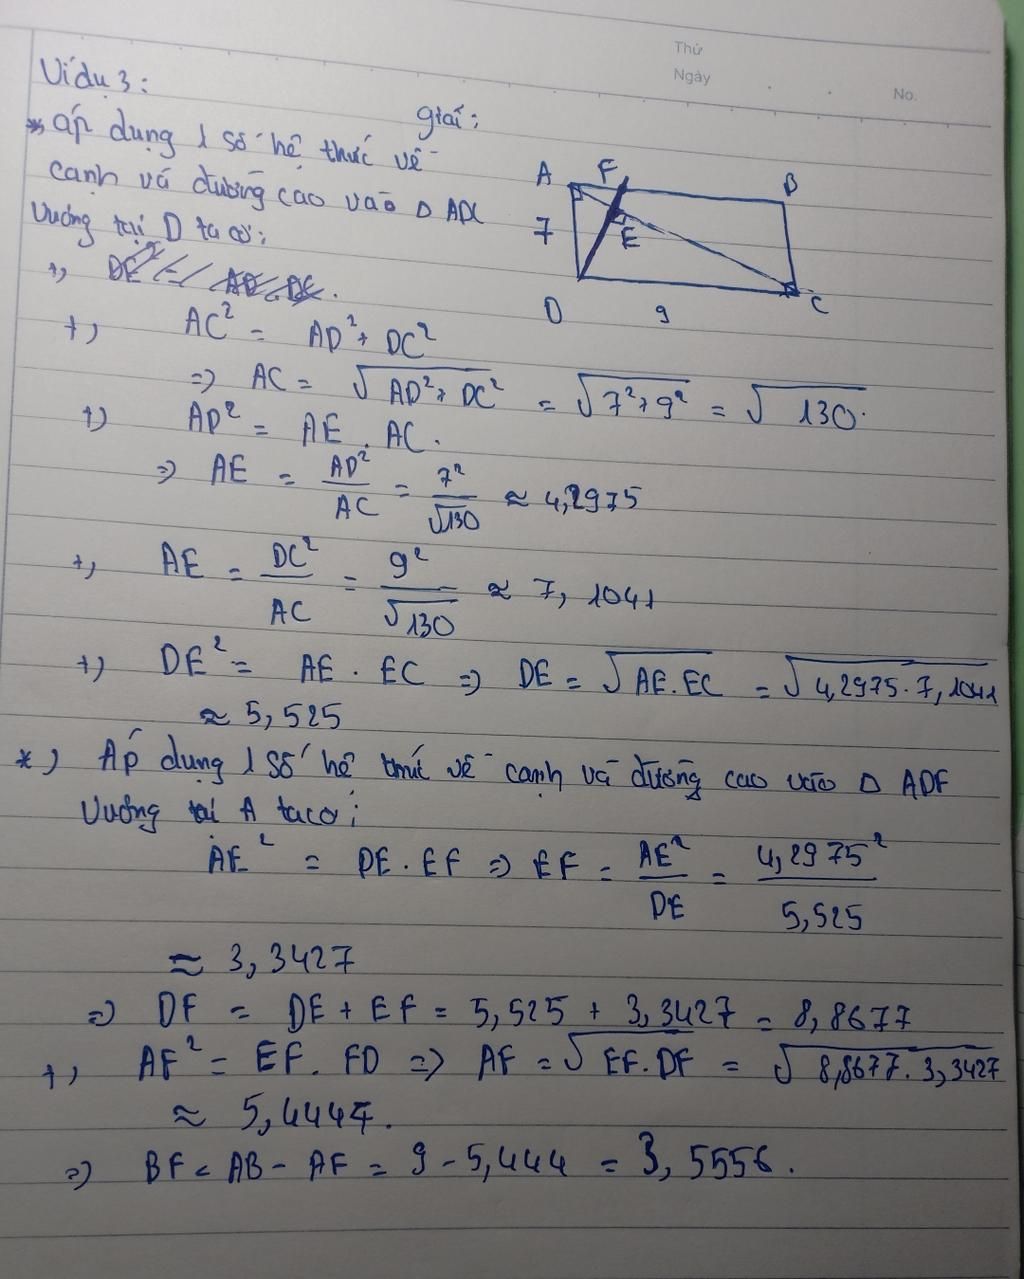 Thứ
Ngày
No.
Ví dụ 3:
giải:
* áp dụng 1 số hệ thức về
cạnh và đường cao vào Δ ADC
vuông tại D ta có:
A F B
7 E
D 9 C
+, AC² = AD² + DC²
=> AC = √AD² + DC² = √7² + 9² = √130.
+) AD² = AE . AC.
=> AE = AD²/AC = 7²/√130 ≈ 4,2975
+, AE = DC²/AC = 9²/√130 ≈ 7,1041
+) DE² = AE . EC => DE = √AE.EC = √4,2975.7,1041
≈ 5,525
*) Áp dụng 1 số hệ thức về cạnh và đường cao vào Δ ADF
vuông tại A ta có:
AE² = DE.EF => EF = AE²/DE = 4,2975²/5,525
≈ 3,3427
=> DF = DE + EF = 5,525 + 3,3427 = 8,8677
+, AF² = EF. FD => AF = √EF.DF = √8,8677.3,3427
≈ 5,4447.
=> BF = AB - AF = 9 - 5,444 = 3,5556.